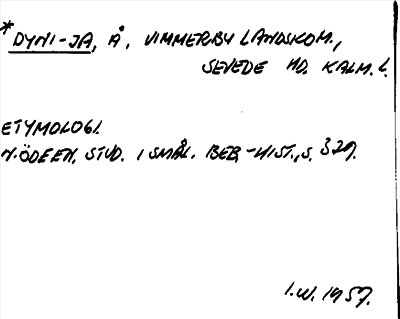 *DYNI-JA, Å, VIMMERBY LANDSKOM.,
SEVEDE HD. KALM. L.
ETYMOLOGI.
N. ÖDEEN. STUD. I SMÅL. BEB.-HIST., S. 329.
I.W. 1957.